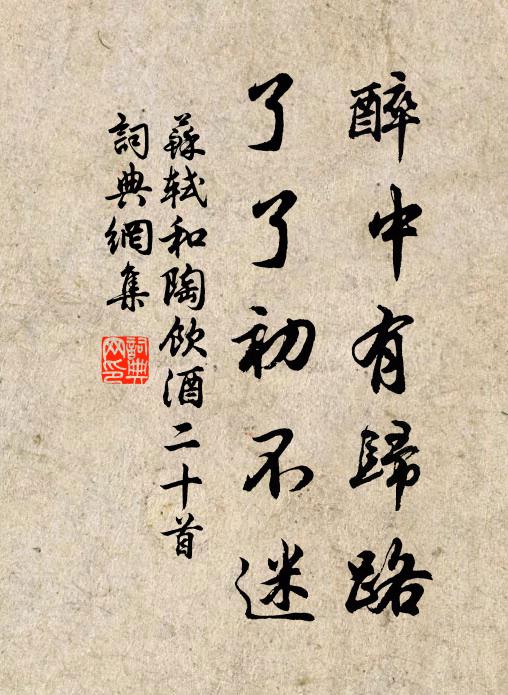 醉中有歸路
了了初不迷
蘇軾和陶飲酒二十首
詞典網集
詞典網印